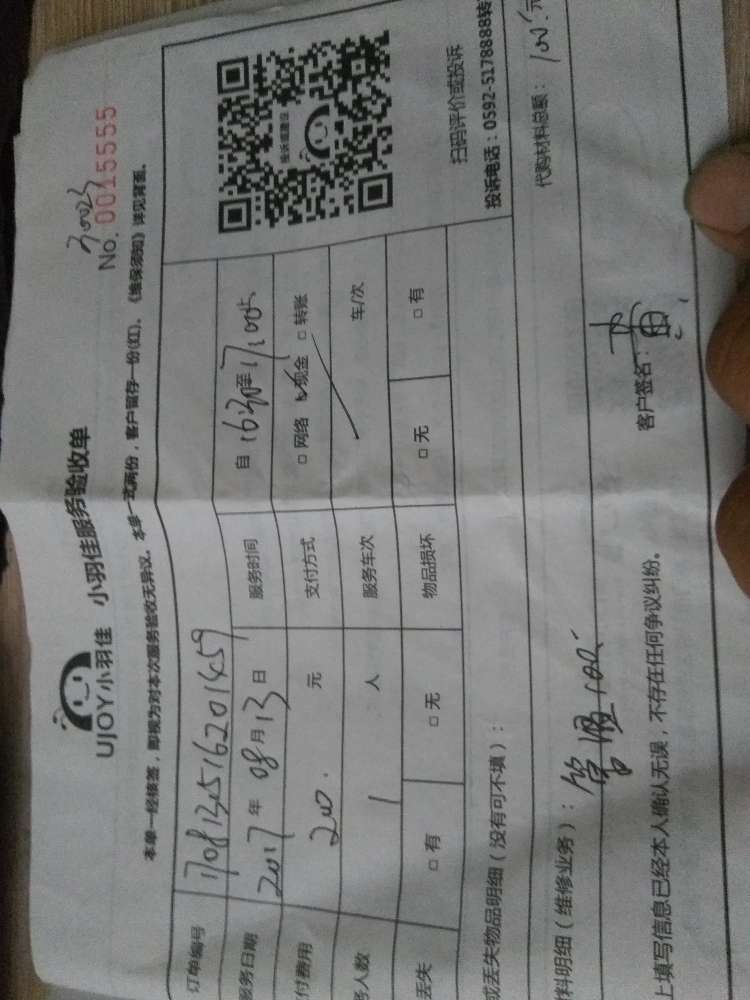 30025
No. 0015555
UJOY小羽佳 小羽佳服务验收单
本单一经核签，即视为对本次服务验收无异议。本单一式两份，客户留存一份(红)。《维保须知》详见背面。
订单编号 1708130516201459
服务日期 2017年08月13日 服务时间 自16:30至17:00
付费用 200. 元 支付方式 □网络 ☑现金 □转账
务人数 1 人 服务车次 车/次
丢失 □有 □无 物品损坏 □无 □有
投诉或建议
扫码评价或投诉
投诉电话：0592-5178888转
或丢失物品明细（没有可不填）：
料明细（维修业务）： 100. 代购材料总额： 100.元
客户签名：
上填写信息已经本人确认无误，不存在任何争议纠纷。